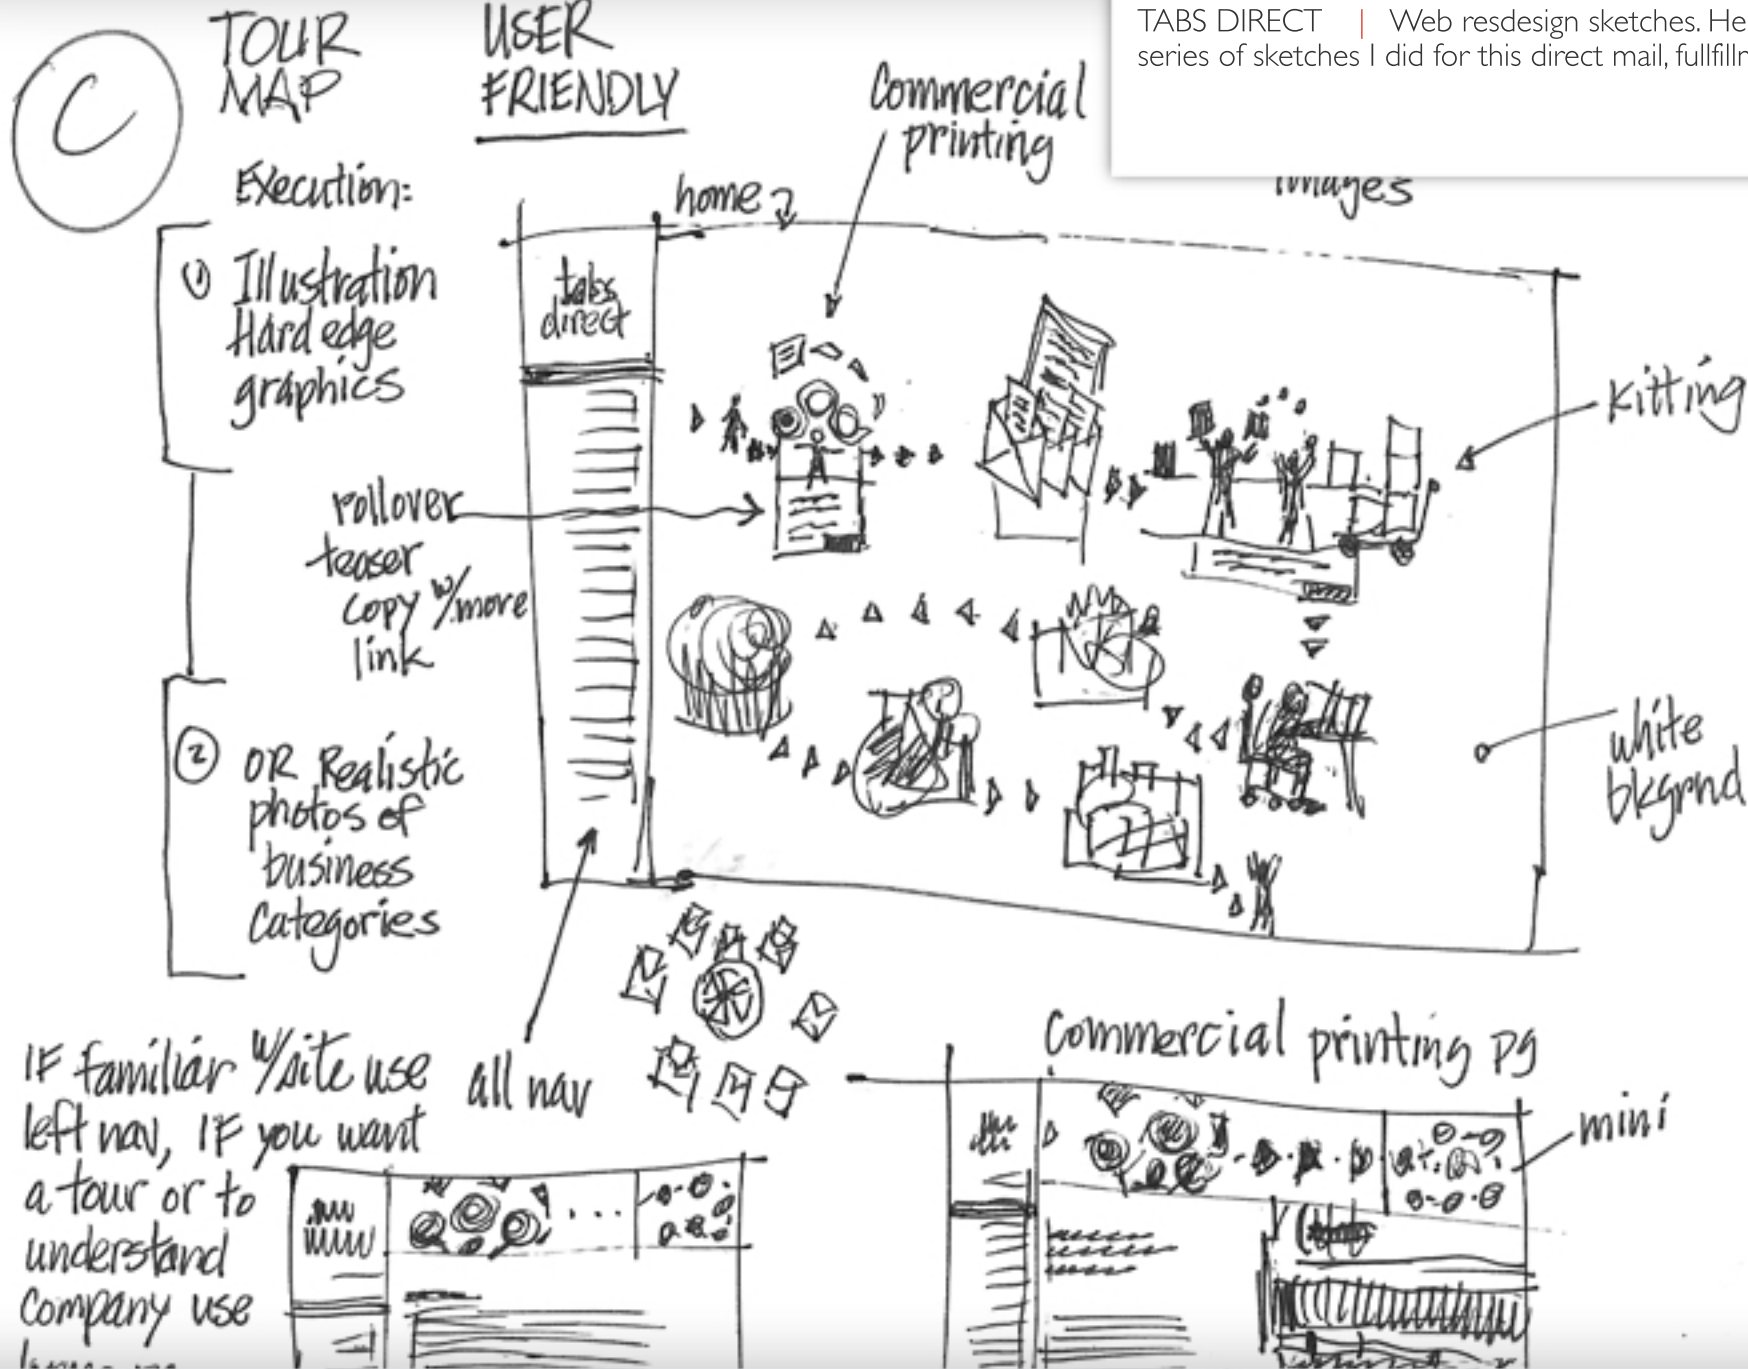 TABS DIRECT | Web resdesign sketches. He
series of sketches I did for this direct mail, fullfillr
C
TOUR
MAP
USER
FRIENDLY
Commercial
printing
images
Execution:
home
① Illustration
Hard edge
graphics
tabs
direct
Kitting
rollover
teaser
copy w/more
link
② OR Realistic
photos of
business
Categories
white
bkgrnd
IF familiar w/site use
left nav, IF you want
a tour or to
understand
Company use
all nav
Commercial printing pg
mini